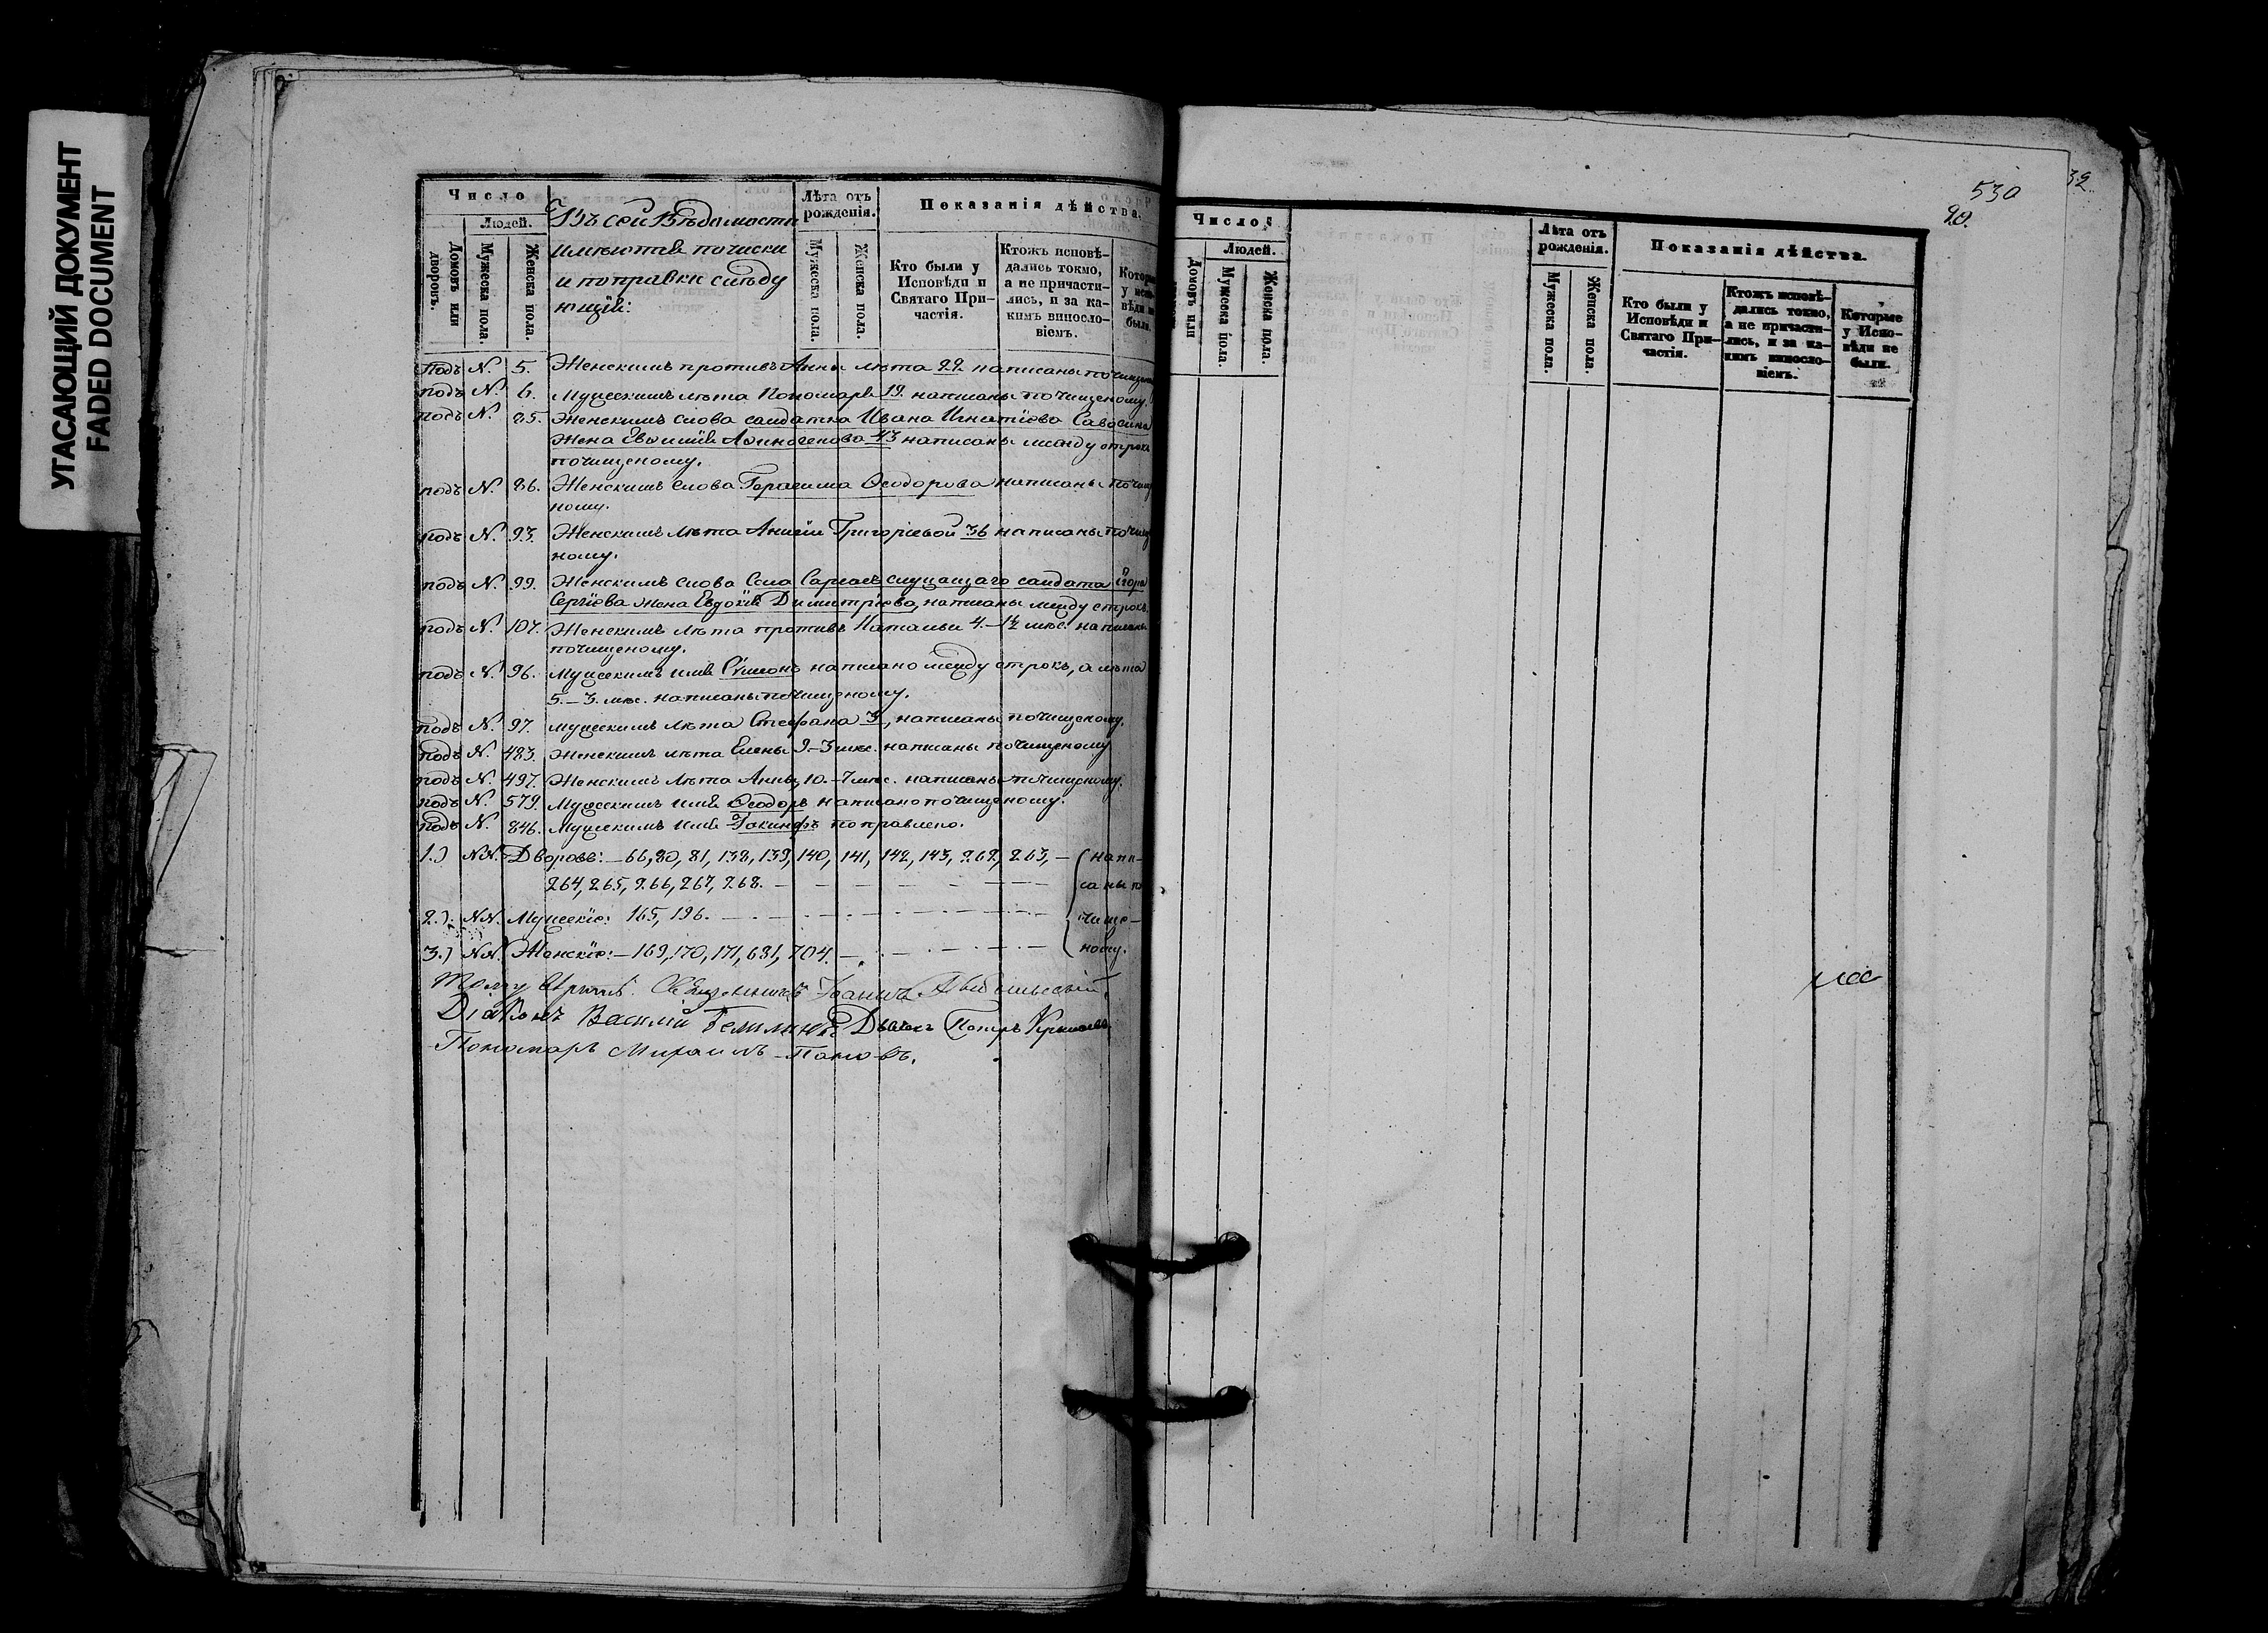 УГАСАЮЩИЙ ДОКУМЕНТ
FADED DOCUMENT
Число
Людей.
Домовъ или дворовъ.
Мужеска пола.
Женска пола.
Въ сей Вѣдомости
имѣются почиски
и поправки слѣду
ющія:
Лѣта отъ рожденія.
Мужеска пола.
Женска пола.
Показанія дѣйства.
Кто были у Исповѣди и Святаго При-
частія.
Ктожъ исповѣ-
дались токмо,
а не причасти-
лись, и за ка-
кимъ винosло-
віемъ.
подъ N. 5. Женскимъ противъ Анны лѣта 22 написаны
подъ N. 6. Мужескимъ лѣта Пономаря 19. написаны почищеному.
подъ N. 85. Женскимъ слова солдатка Ивана Игнатіева Савосина
жена Евѳимія 43 написаны между строкъ
почищеному.
подъ N. 86. Женскимъ слова Герасима Ѳеодорова написаны почище
ному.
подъ N. 93. Женскимъ лѣта Анисіи Григоріевой 36 написаны почище
ному.
подъ N. 99. Женскимъ слова Села служащаго солдата Егора
Сергіева жена Евдокія Димитріева, написаны между строкъ.
подъ N. 107. Женскимъ лѣта противъ Натальи 4.–1½ мѣс. написаны
почищеному.
подъ N. 96. Мужескимъ имя Сѵмеонъ написано между строкъ, а лѣта
5.–3. мѣс. написаны почищеному.
подъ N. 97. мужескимъ лѣта Стефана 3, написаны почищеному.
подъ N. 483. Женскимъ лѣта Елены 9.–3 мѣс. написаны почищеному
подъ N. 497. Женскимъ лѣта Анны, 10.–7 мѣс. написаны почищеному.
подъ N. 579. Мужескимъ имя Ѳеодоръ написано почищеному.
подъ N. 846. Мужескимъ имя Іакинфъ поправлено.
1.) NN. Дворовъ: – 66, 80, 81, 138, 139, 140, 141, 142, 143, 262, 263, – напи-
264, 265, 266, 267, 268. – саны по
2.) NN. Мужскіе: 165, 196. чище-
3.) NN. Женскіе: – 169, 170, 171, 681, 704. ному.
Священникъ Іоаннъ
Діаконъ Василій Дьячекъ Петръ
Пономарь Михаилъ Поповъ.
530
32
90.
Число
Людей.
Домовъ или
Мужеска пола.
Женска пола.
Лѣта отъ рожденія.
Мужеска пола.
Женска пола.
Показанія дѣйства.
Кто были у Исповѣди и Святаго При-
частія.
Ктожъ исповѣ-
дались токмо,
а не причасти-
лись, и за ка-
кимъ винosло-
віемъ.
Которые у Испо-
вѣди не были.